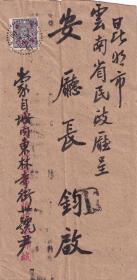 昆明市
雲南省民政廳呈
安廳長鈞啟
蒙自城南東林寺街卅號尹緘